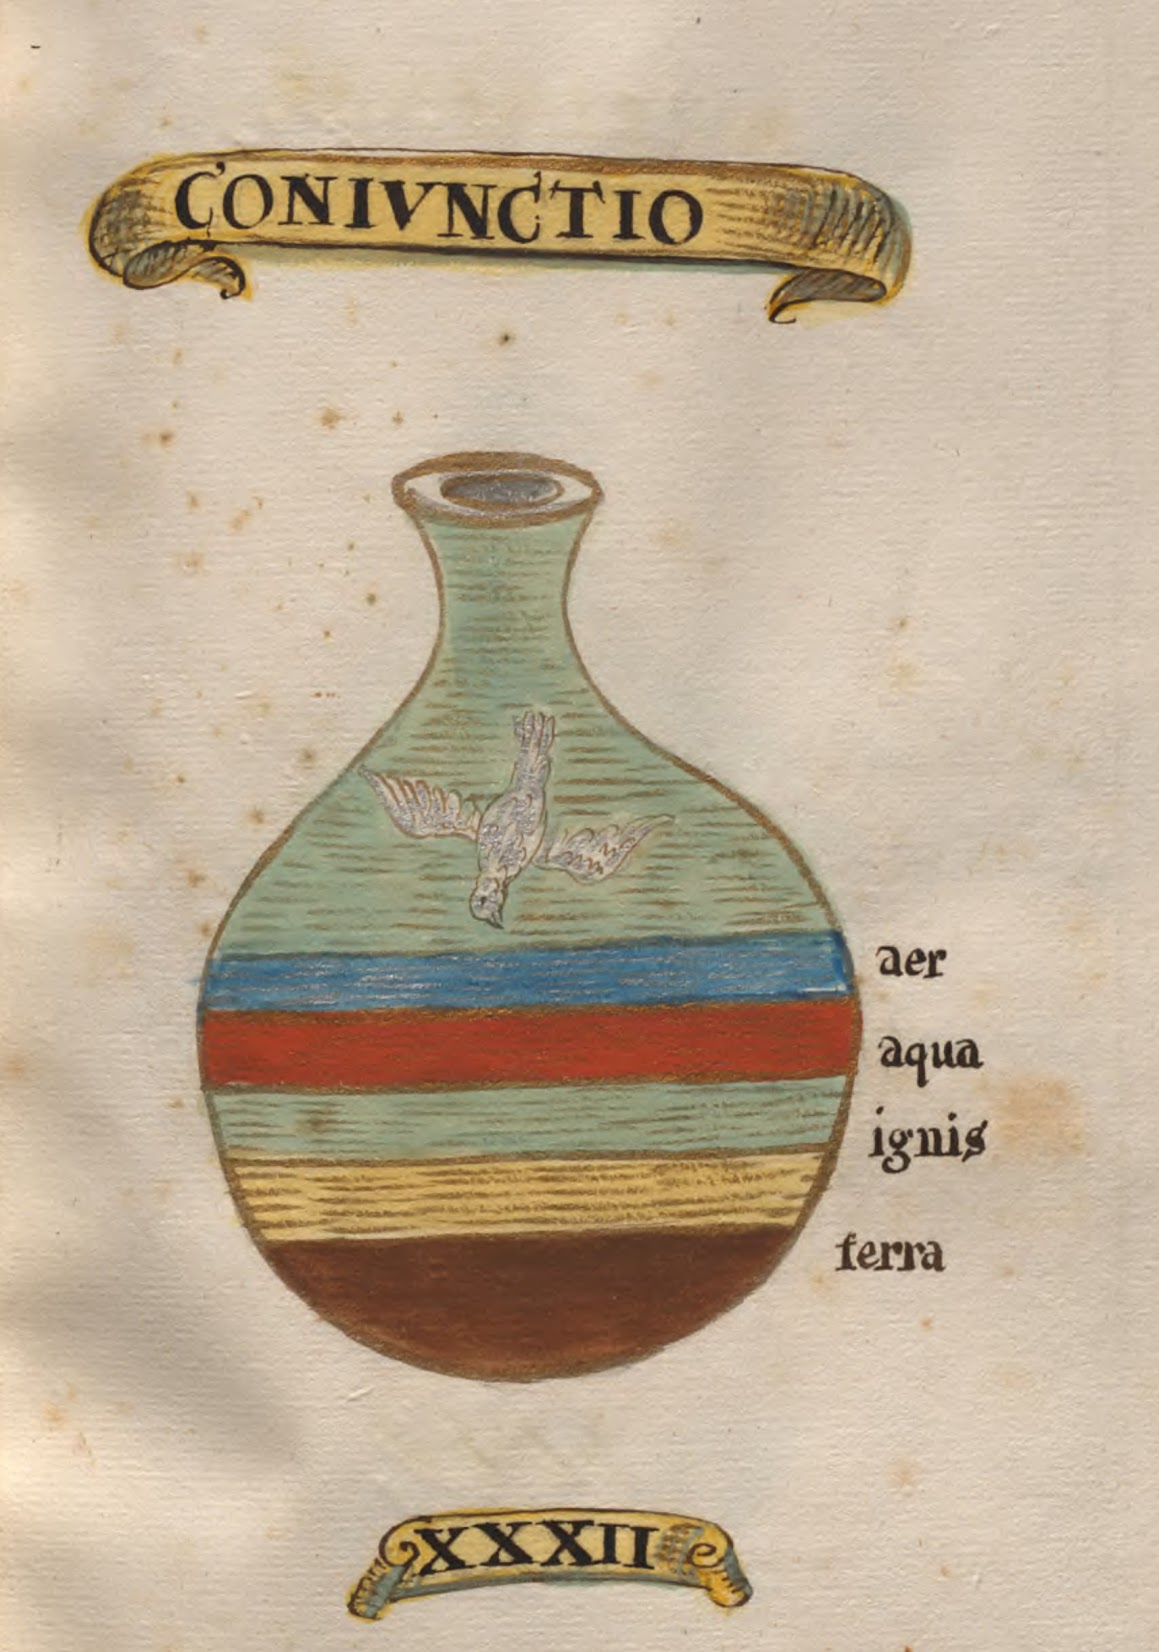 CONIVNCTIO
aer
aqua
ignis
terra
XXXII